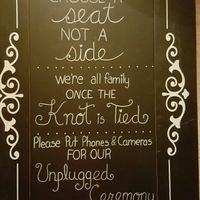 CHOOSE A
seat
NOT A
side
We're all family
ONCE THE
Knot is Tied
Please Put Phones & Cameras
FOR OUR
Unplugged
Ceremony